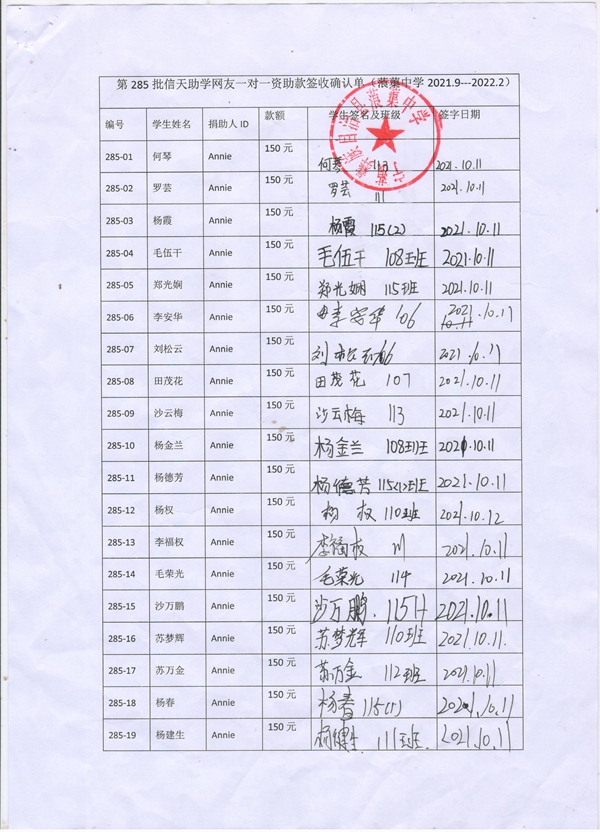 第 285 批信天助学网友一对一资助款签收确认单（蕖蕖中学 2021.9---2022.2）
编号 学生姓名 捐助人 ID 款额 学生签名及班级 签字日期
285-01 何琴 Annie 150 元 何琴 113 2021.10.11
285-02 罗芸 Annie 150 元 罗芸 111 2021.10.11
285-03 杨霞 Annie 150 元 杨霞 115(2) 2021.10.11
285-04 毛伍干 Annie 150 元 毛伍干 108班 2021.10.11
285-05 郑光娴 Annie 150 元 郑光娴 115班 2021.10.11
285-06 李安华 Annie 150 元 李安华 106 2021.10.11
285-07 刘松云 Annie 150 元 刘松云 106 2021.10.11
285-08 田茂花 Annie 150 元 田茂花 107 2021.10.11
285-09 沙云梅 Annie 150 元 沙云梅 113 2021.10.11
285-10 杨金兰 Annie 150 元 杨金兰 108班 2021.10.11
285-11 杨德芳 Annie 150 元 杨德芳 115(1)班 2021.10.11
285-12 杨权 Annie 150 元 杨权 110班 2021.10.12
285-13 李福权 Annie 150 元 李福权 111 2021.10.11
285-14 毛荣光 Annie 150 元 毛荣光 114 2021.10.11
285-15 沙万鹏 Annie 150 元 沙万鹏 115 2021.10.11
285-16 苏梦辉 Annie 150 元 苏梦辉 110班 2021.10.11
285-17 苏万金 Annie 150 元 苏万金 112班 2021.10.11
285-18 杨春 Annie 150 元 杨春 115(1) 2021.10.11
285-19 杨建生 Annie 150 元 杨健生 111班 2021.10.11